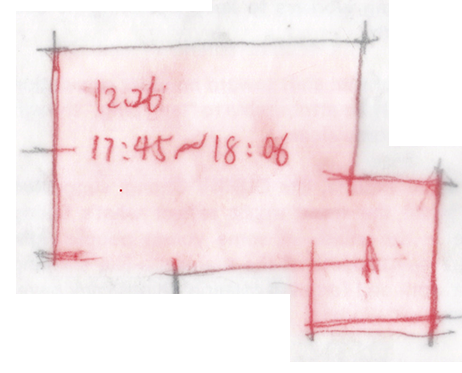 12.26
17:45~18:06